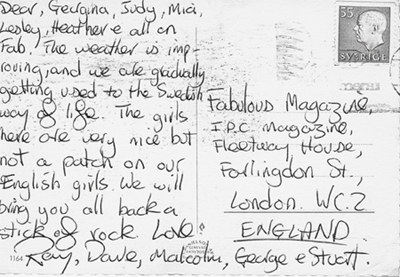 Dear, Georgina, Judy, Mici,
Lesley, Heather e all on
Fab, The weather is imp-
roving, and we are gradually
getting used to the Swedish
way of life. The girls
here are very nice but
not a patch on our
English girls. We will
bring you all back a
stick of rock Love
Reny, Dave, Malcolm, George e Stuart.
55
SVERIGE
Fabulous Magazine,
I.P.C. magazine,
Fleetway House,
Farlingdon St.,
London. W.C.2
ENGLAND.
1164